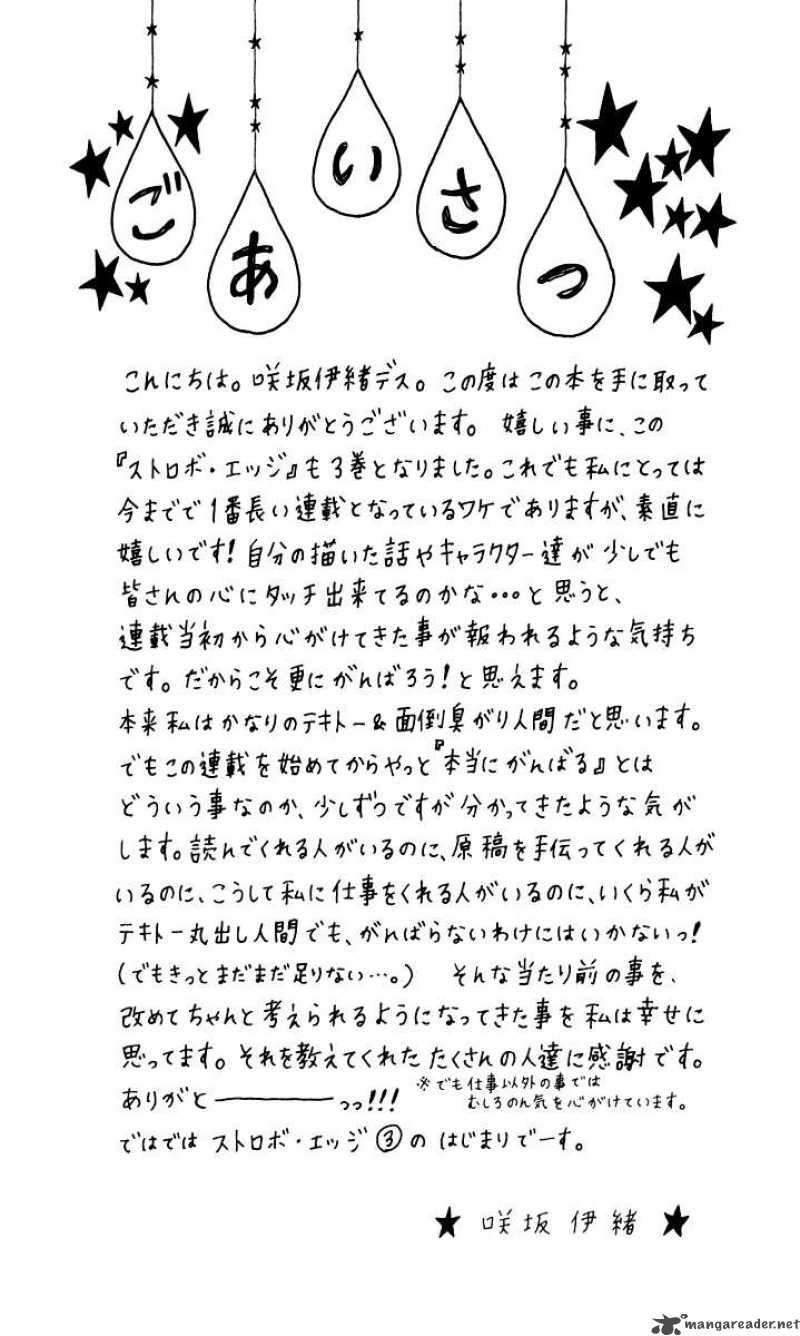 ごあいさつ
こんにちは。咲坂伊緒デス。この度はこの本を手に取って
いただき誠にありがとうございます。嬉しい事に、この
『ストロボ・エッジ』も3巻となりました。これでも私にとっては
今までで1番長い連載となっているワケでありますが、素直に
嬉しいです!自分の描いた話やキャラクター達が少しでも
皆さんの心にタッチ出来てるのかな…と思うと、
連載当初から心がけてきた事が報われるような気持ち
です。だからこそ更にがんばろう!と思えます。
本来私はかなりのテキトー&面倒臭がり人間だと思います。
でもこの連載を始めてからやっと『本当にがんばる』とは
どういう事なのか、少しずつですが分かってきたような気が
します。読んでくれる人がいるのに、原稿を手伝ってくれる人が
いるのに、こうして私に仕事をくれる人がいるのに、いくら私が
テキトー丸出し人間でも、がんばらないわけにはいかないっ!
(でもきっとまだまだ足りない…。) そんな当たり前の事を、
改めてちゃんと考えられるようになってきた事を私は幸せに
思ってます。それを教えてくれたたくさんの人達に感謝です。
ありがと――――っっ!!!
※でも仕事以外の事では
むしろのん気を心がけています。
ではでは ストロボ・エッジ③の はじまりでーす。
★ 咲坂伊緒 ★
mangareader.net